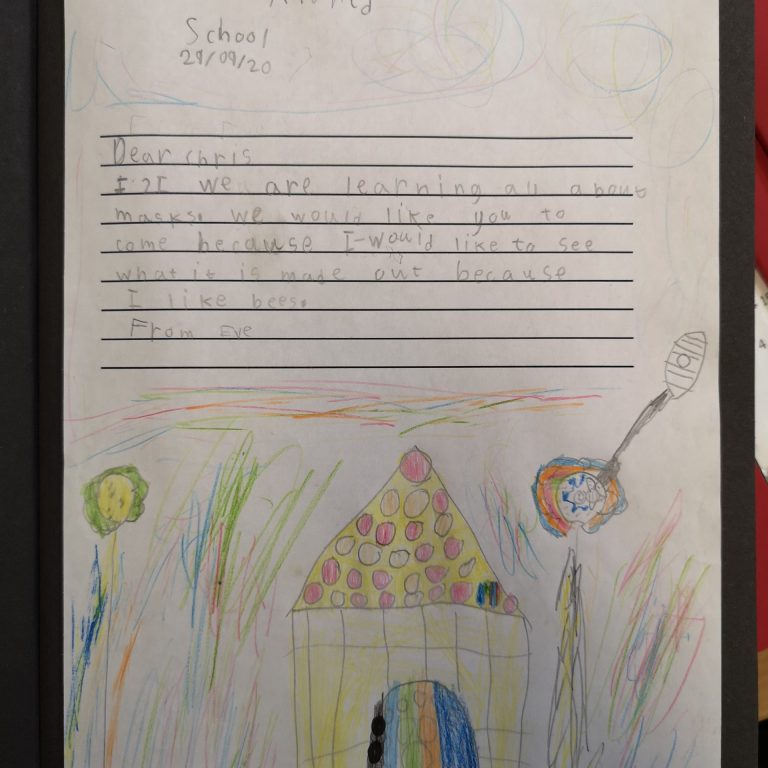 School
29/09/20
Dear chris
we are learning all about
masks. we would like you to
come because I would like to see
what it is made out because
I like bees.
From Eve